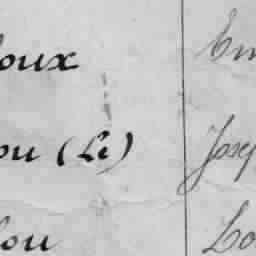 oux Em
ou (Le) Josep
lou Lo